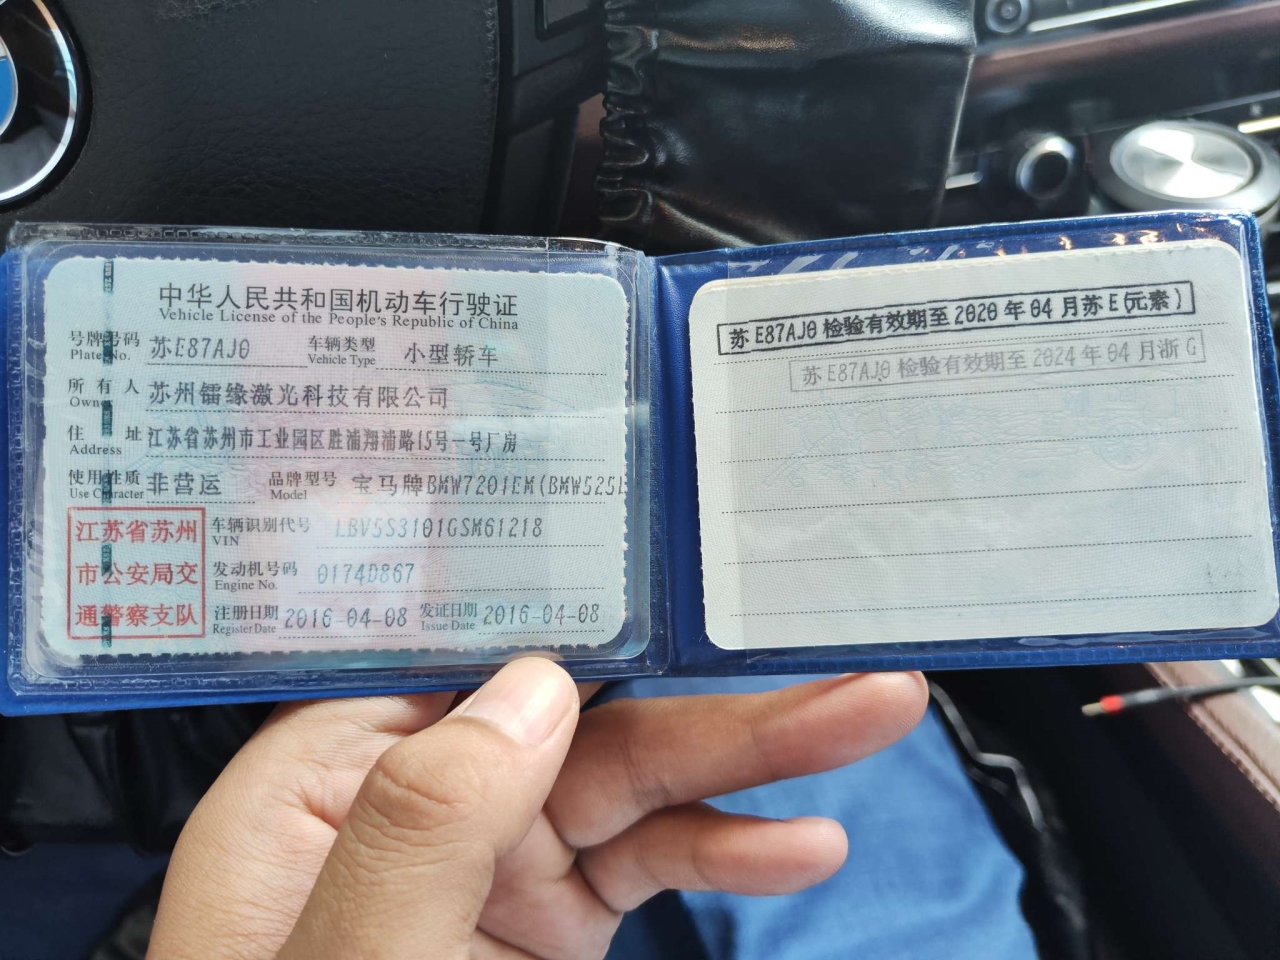 中华人民共和国机动车行驶证
Vehicle License of the People's Republic of China
号牌号码 苏E87AJ0 车辆类型 小型轿车
Plate No. Vehicle Type
所有人 苏州镭缘激光科技有限公司
Owner
住址 江苏省苏州市工业园区胜浦翔浦路15号一号厂房
Address
使用性质 非营运 品牌型号 宝马牌BMW7201EM(BMW525l
Use Character Model
江苏省苏州
市公安局交
通警察支队
车辆识别代号 LBV5S3101GSM61218
VIN
发动机号码 0174D867
Engine No.
注册日期 2016-04-08 发证日期 2016-04-08
Register Date Issue Date
苏E87AJ0检验有效期至2020年04月苏E(元素)
苏E87AJ0检验有效期至2024年04月浙G